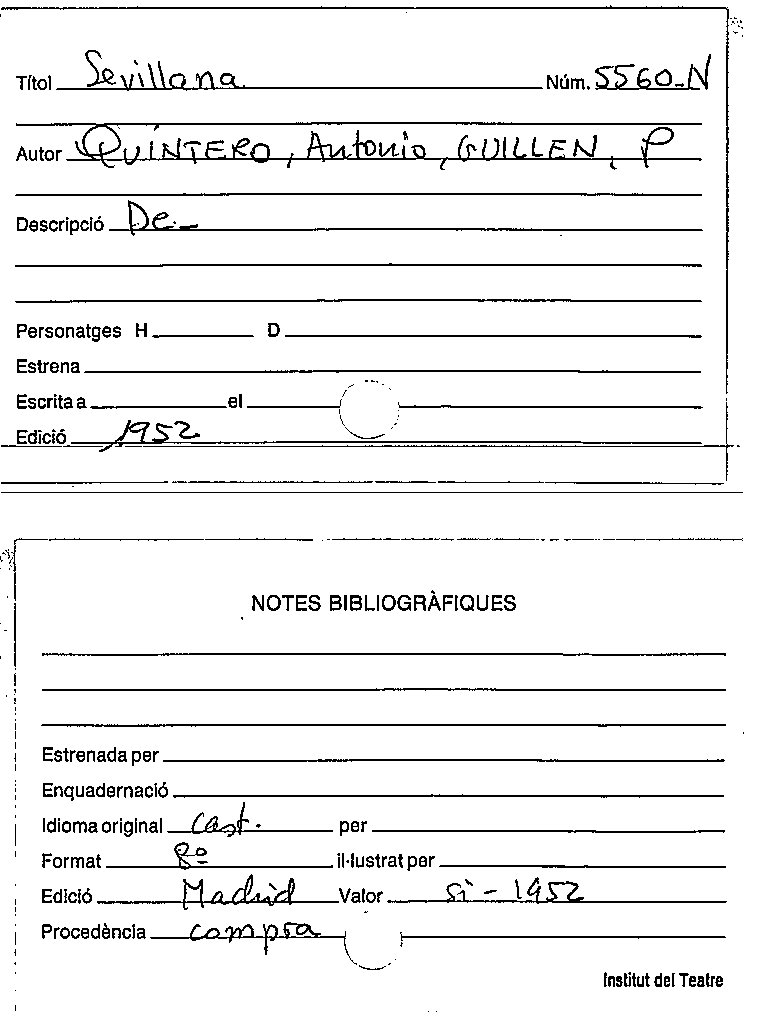 Títol Sevillana Núm. 5560-N
Autor QUINTERO, Antonio, GUILLEN, P
Descripció De.-
Personatges H D
Estrena
Escrita a el
Edició 1952
NOTES BIBLIOGRÀFIQUES
Estrenada per
Enquadernació
Idioma original cast. per
Format 8º il·lustrat per
Edició Madrid Valor si - 1952
Procedència compra
Institut del Teatre